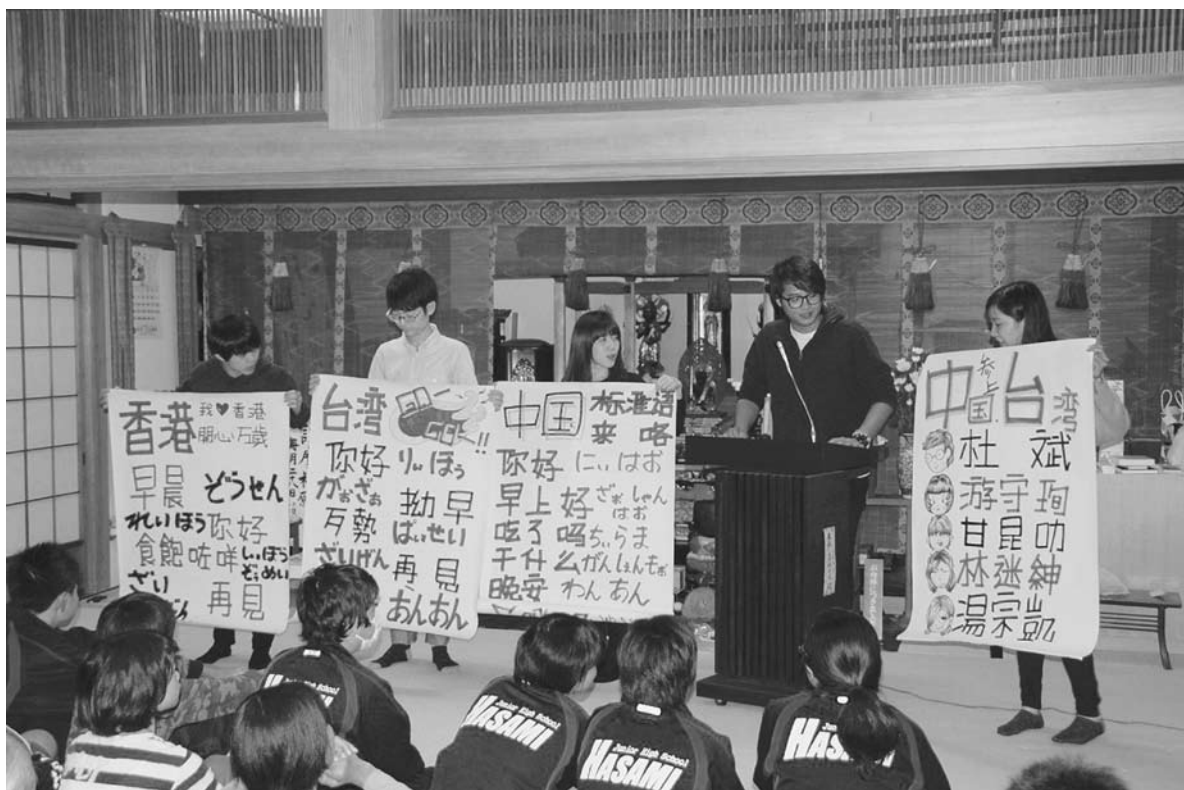 香港
我♥香港
開心万歳
早晨
ぞうせん
れいほう 你好
食飽咗咩
しぃほう
ぞぅめい
ざい
再見
台湾
GO!!
你好 りぃほう
がぉざぁ
勎早
歹勢
ばぃせい
ざりげん 再見
あんあん
中国 标准语
来咯
你好 にぃはお
早上好 ざぉしゃん
はお
吃了吗 ちぃらま
干什么 がんしょんもぉ
晚安 わんあん
中国
台湾
杜 斌
游守珣
甘昆叻
林逖紳
湯宗凱
Junior High School
HASAMI
Junior High School
HASAMI
Junior High School
HASAMI
Junior High School
HASAMI